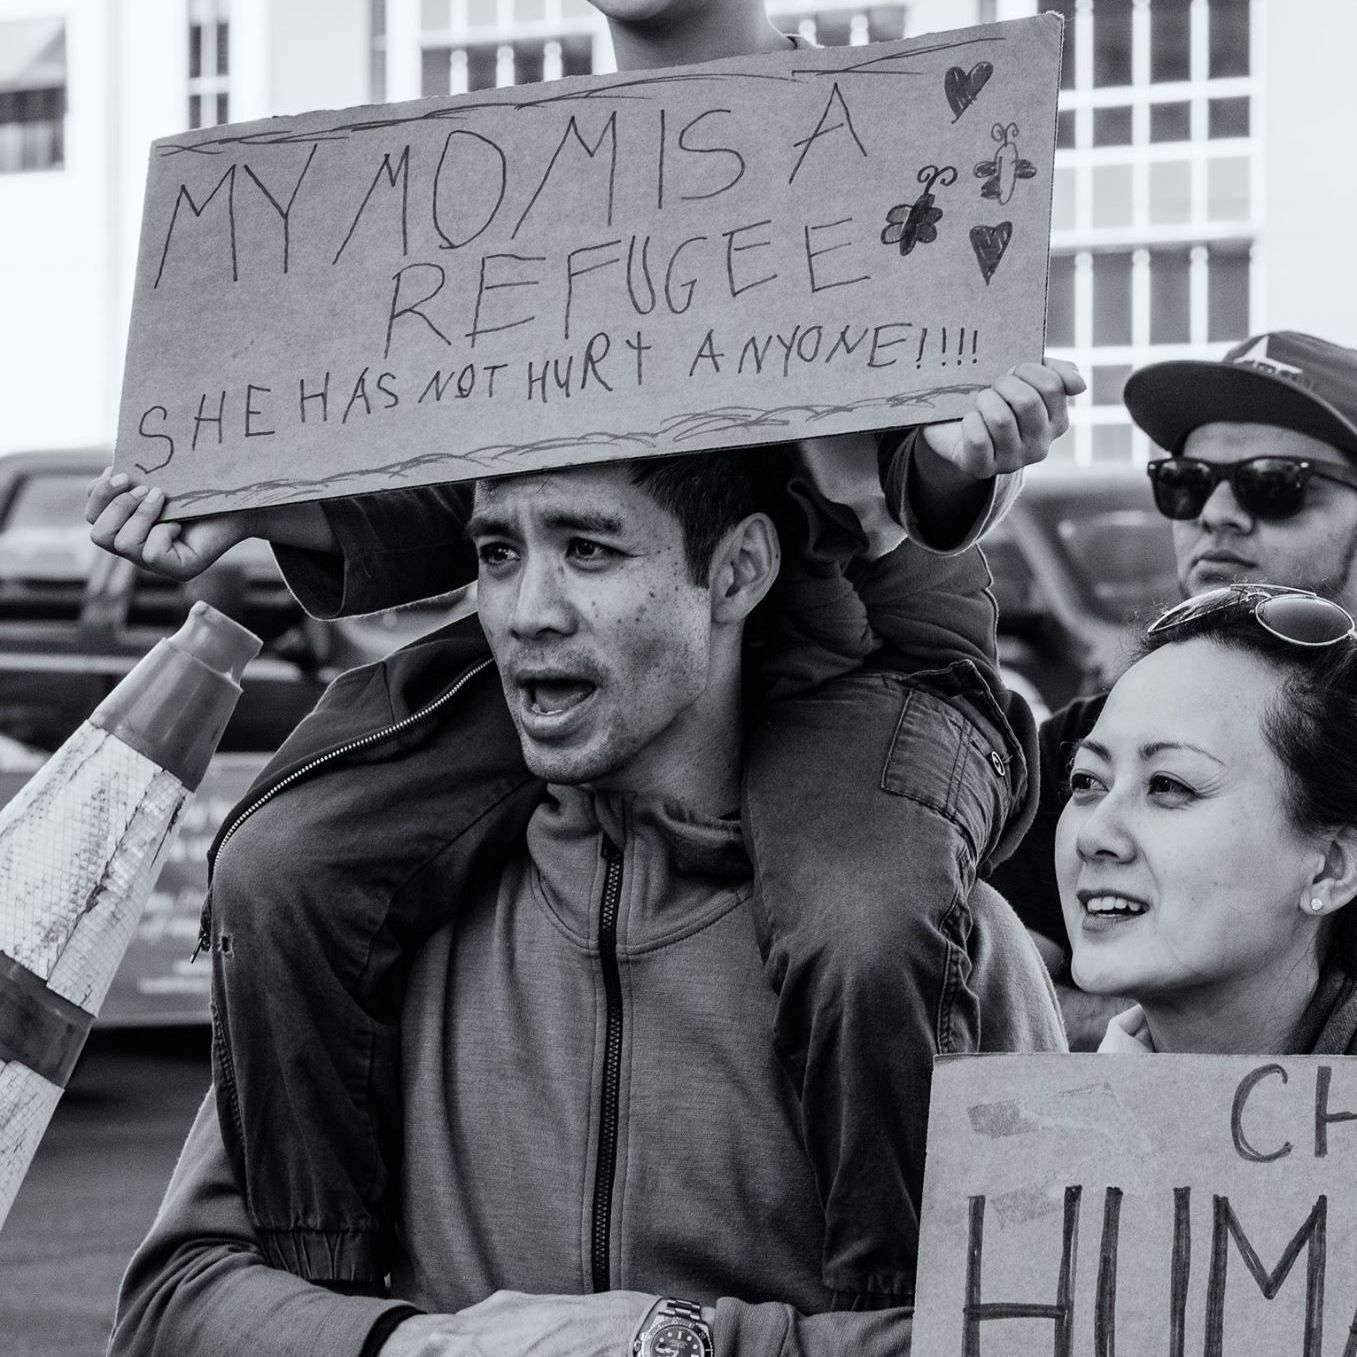 MY MOM IS A
REFUGEE
SHE HAS NOT HURT ANYONE!!!!
CH
HUM